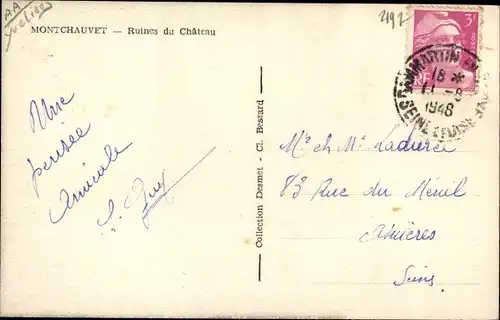 AA
MONTCHAUVET — Ruines du Château
2197
3F
RF
DAMMARTIN EN
18 *
11 - 8
1948
SEINE ET OISE
Une
pensée
Amicale
Collection Desmet - Cl. Bestard
Mr et Me Ladurée
83 Rue du Ménil
Asnières
Seine